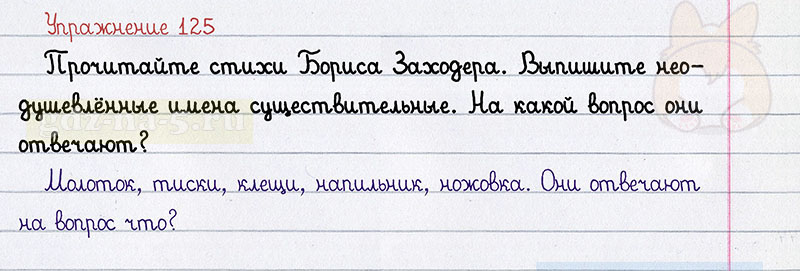 Упражнение 125
Прочитайте стихи Бориса Заходера. Выпишите нео-
душевлённые имена существительные. На какой вопрос они
отвечают?
Молоток, тиски, клещи, напильник, ножовка. Они отвечают
на вопрос что?